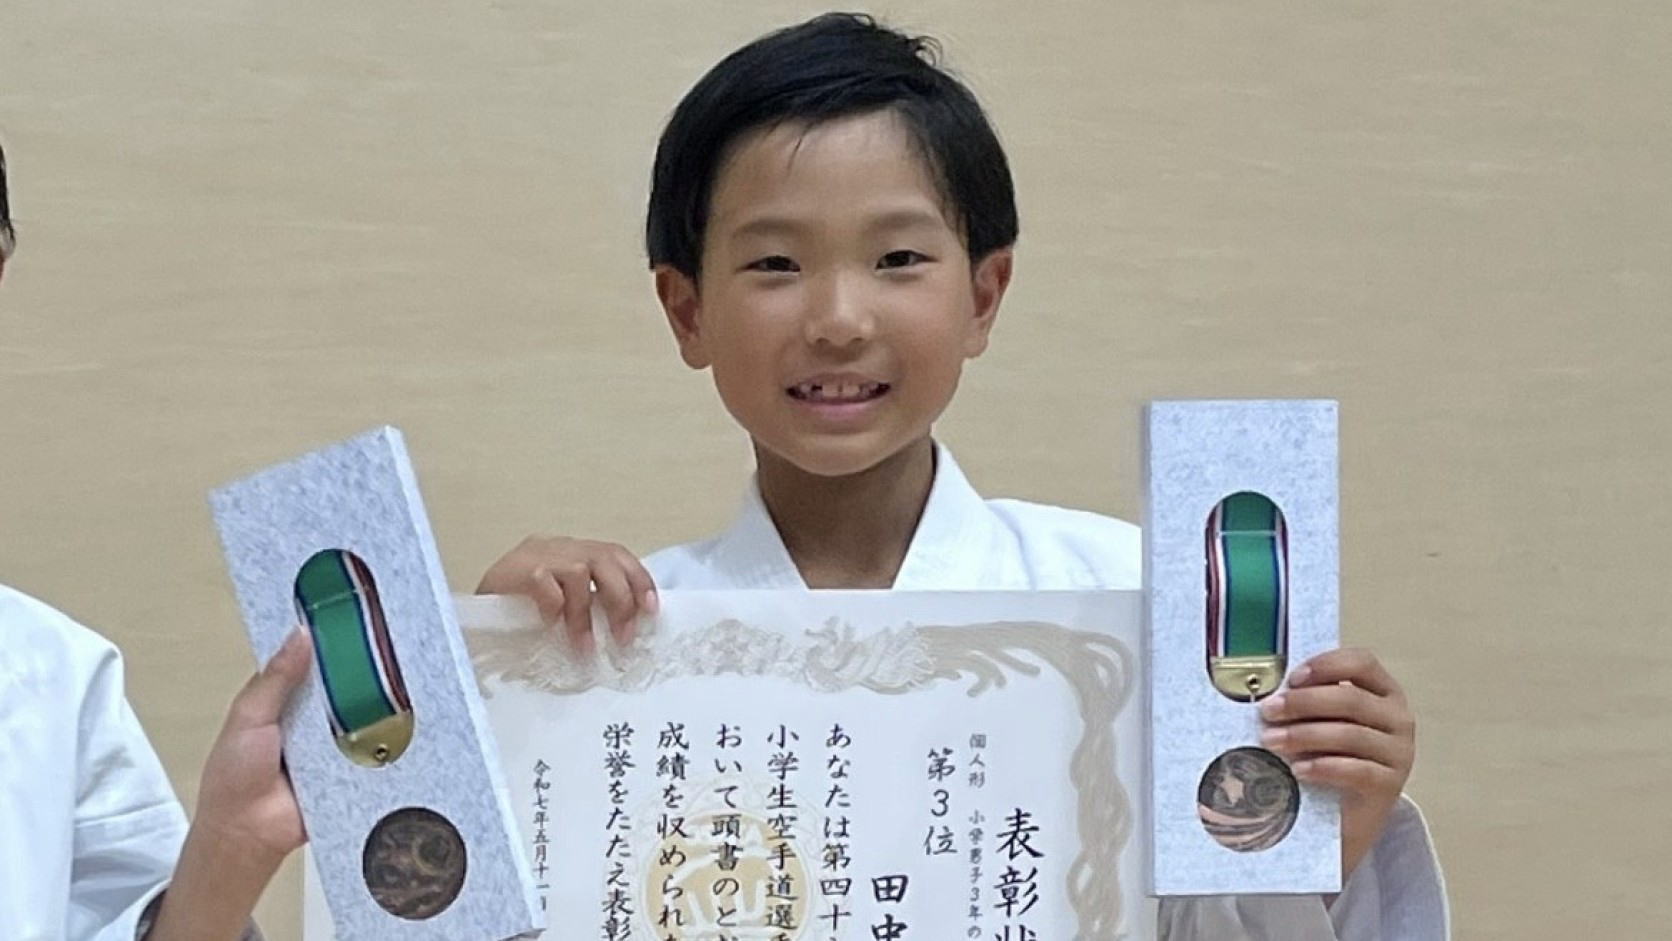 表彰状
個人形 小学男子3年の
第3位
田中
あなたは第四十
小学生空手道選手
おいて頭書のとお
成績を収められま
栄誉をたたえ表彰
令和七年五月十一日